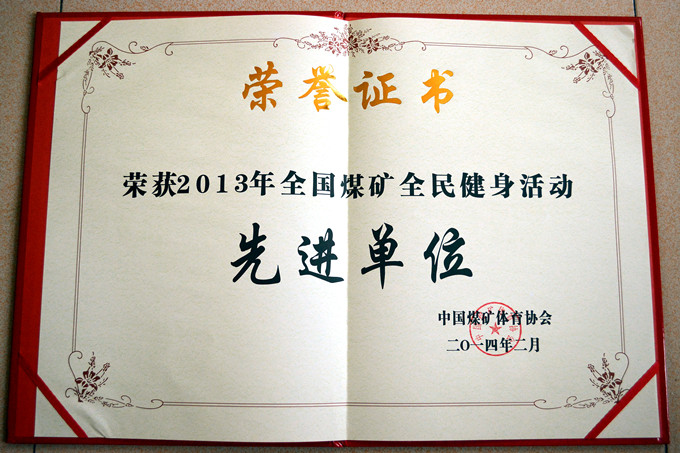 荣誉证书
荣获2013年全国煤矿全民健身活动
先进单位
中国煤矿体育协会
二〇一四年二月